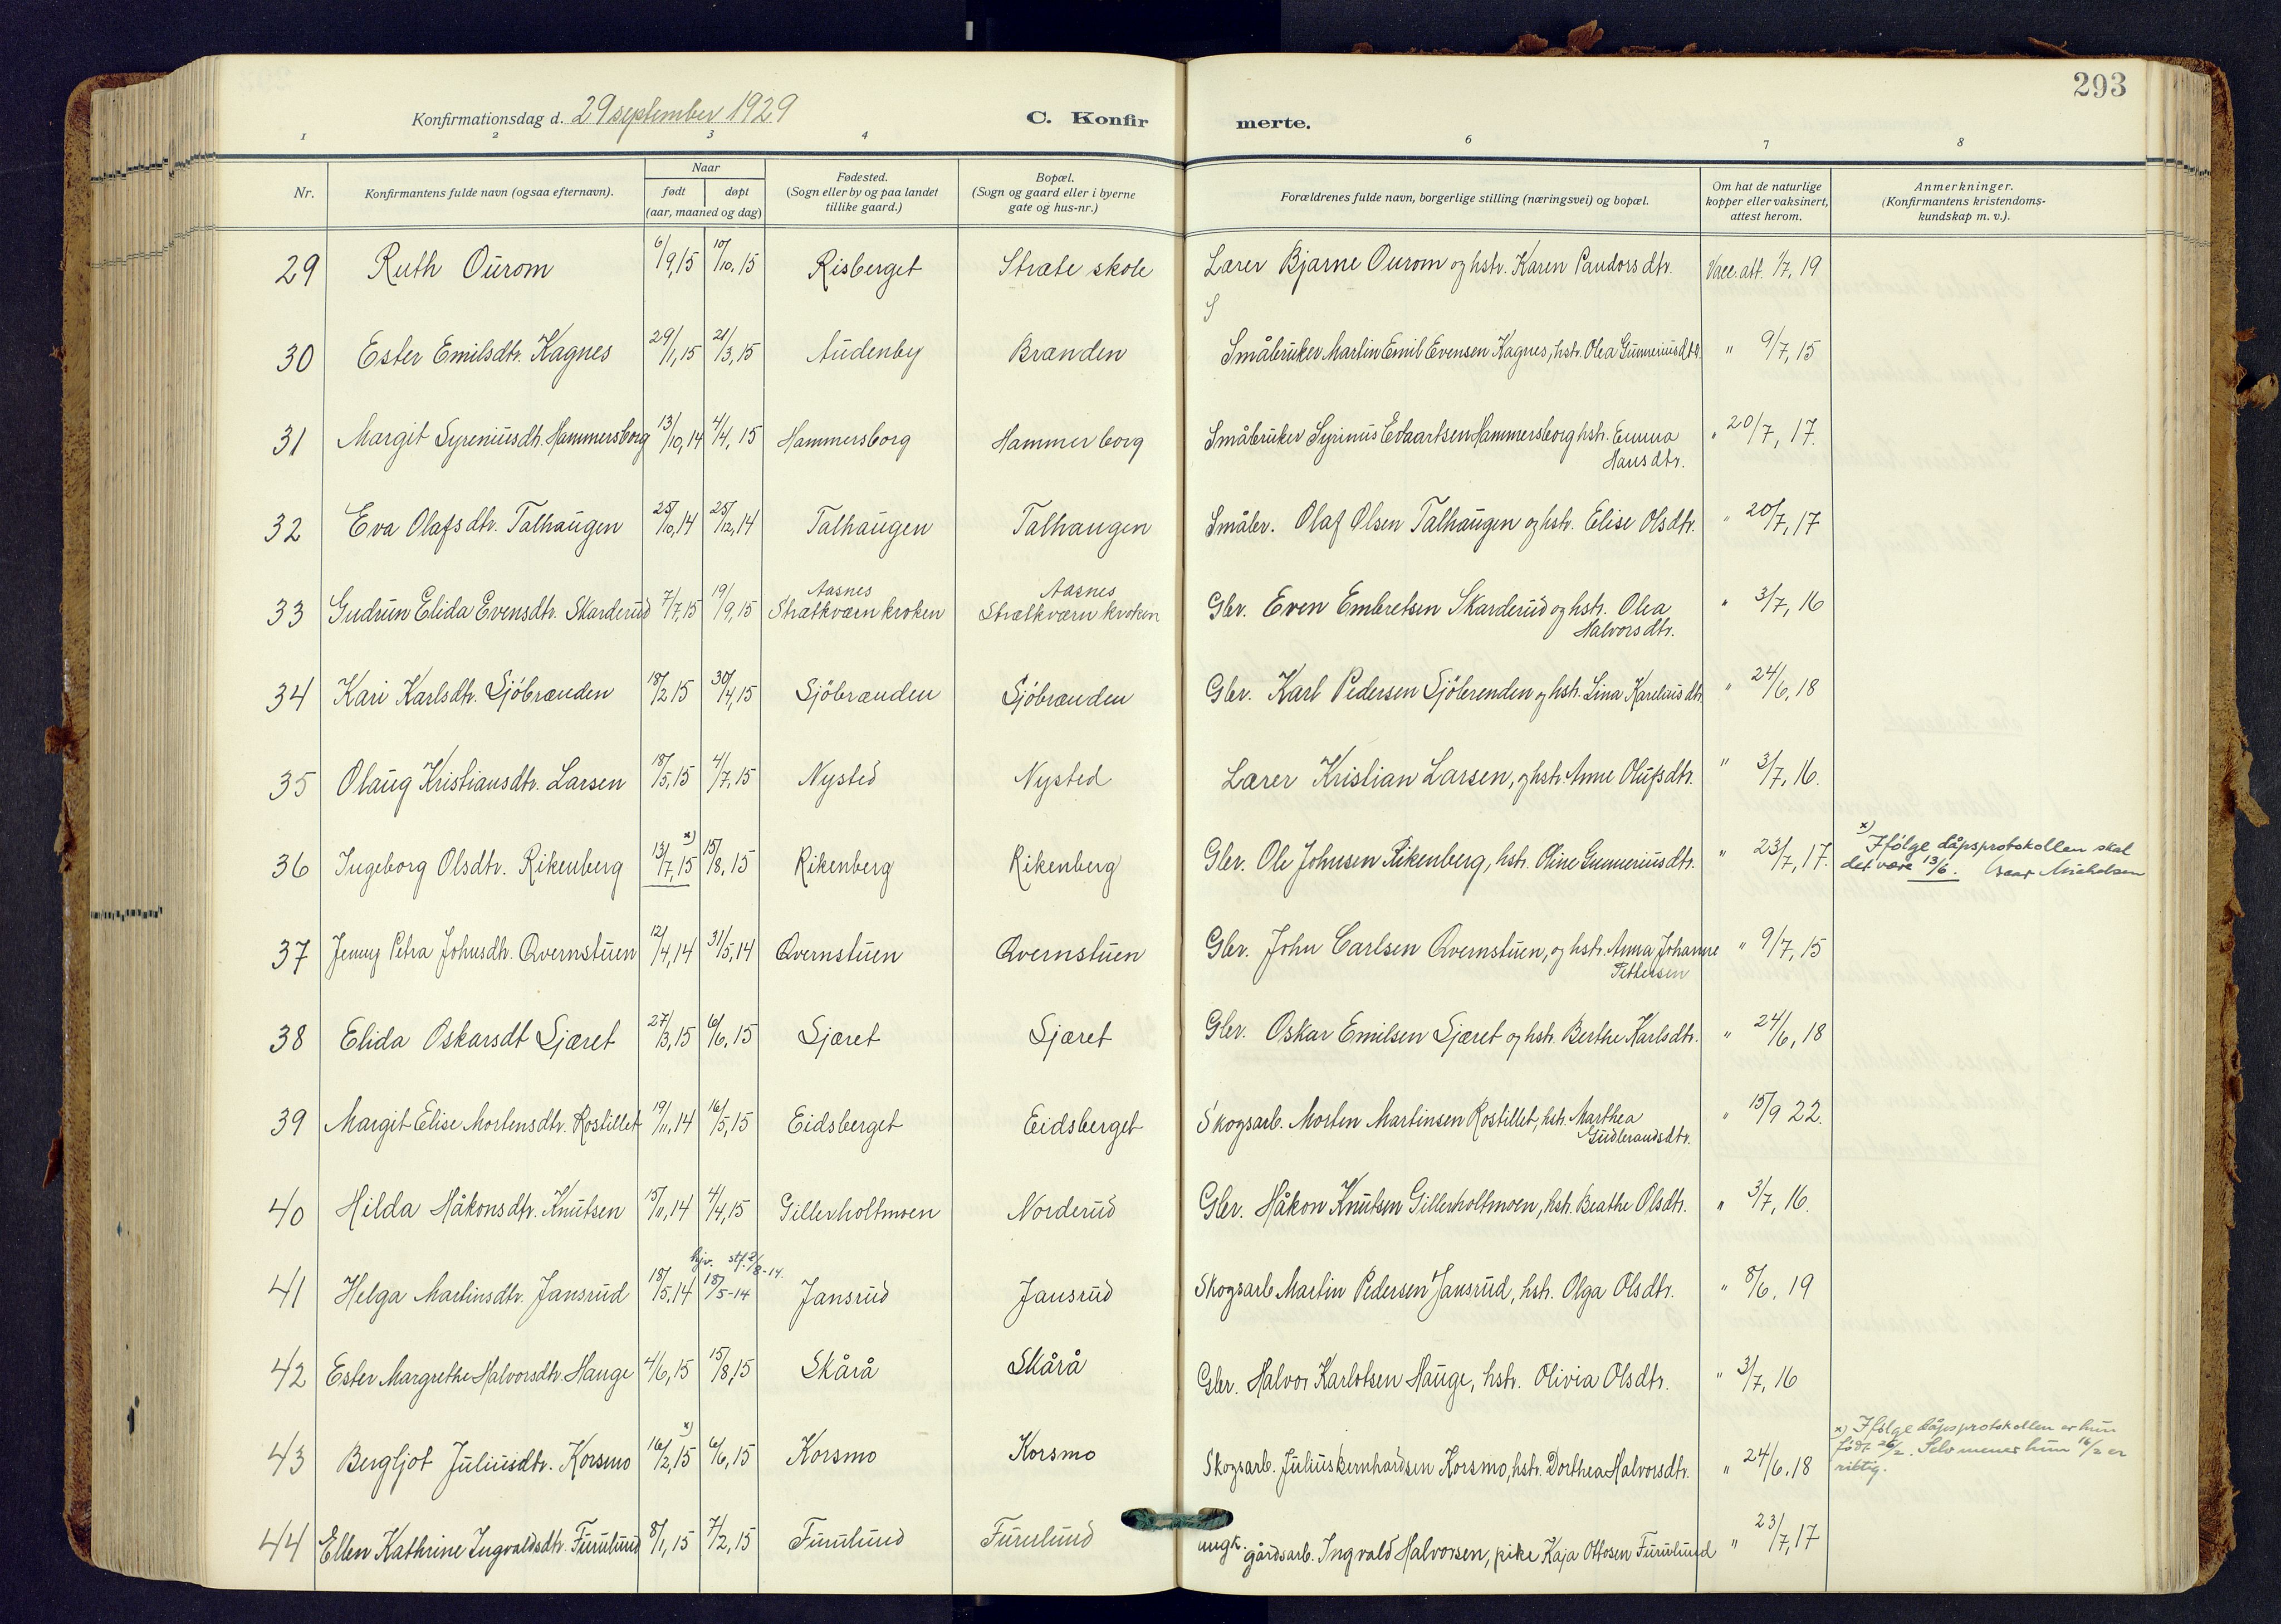 293
Konfirmationsdag d. 29 september 1929
C. Konfir merte.
1 2 3 4 6 7 8
Nr.
Konfirmantens fulde navn (ogsaa efternavn).
Naar
født døpt
(aar, maaned og dag)
Fødested.
(Sogn eller by og paa landet
tillike gaard.)
Bopæl.
(Sogn og gaard eller i byerne
gate og hus-nr.)
Forældrenes fulde navn, borgerlige stilling (næringsvei) og bopæl.
Om hat de naturlige
kopper eller vaksinert,
attest herom.
Anmerkninger.
(Konfirmantens kristendoms-
kundskap m. v.).
29 Ruth Ourom 6/9,15 10/10,15 Risberget Stræte skole Lærer Bjarne Ourom og hstr. Karen Pandorsdtr. Vacc. att. 1/7, 19
30 Ester Emilsdtr. Kagnes 29/1,15 21/3,15 Audenby Brænden Småbruker Martin Emil Evensen Kagnes, hstr. Olea Gunneriusdtr. " 9/7, 15
31 Margit Syreniusdtr. Hammersborg 13/10,14 4/4,15 Hammersborg Hammerborg Småbruker Syrinus Edvartsen Hammersborg hstr. Emma
Hansdtr. " 20/7, 17.
32 Eva Olafsdtr. Talhaugen 25/10,14 25/12,14 Talhaugen Talhaugen Småbr. Olaf Olsen Talhaugen og hstr. Elise Olsdtr. " 20/7, 17
33 Gudrun Elida Evensdtr. Skarderud 7/7,15 19/9,15 Aasnes Strætkværnkroken Aasnes Strætkværnkroken Gbr. Even Embretsen Skarderud og hstr. Olea
Halvorsdtr. " 3/7, 16
34 Kari Karlsdtr. Sjöbrænden 18/2 15 30/4,15 Sjöbrænden Sjöbrænden Gbr. Karl Pedersen Sjöbrenden og hstr. Lina Kareliusdtr. " 24/6, 18
35 Olaug Kristiansdtr. Larsen 18/5,15 4/7,15 Nysted Nysted Lærer Kristian Larsen, og hstr. Anne Olufsdtr. " 3/7, 16.
36 Ingeborg Olsdtr. Rikenberg 13/7,15 x) 15/8,15 Rikenberg Rikenberg Gbr. Ole Johnsen Rikenberg, hstr. Oline Gunneriusdtr. " 23/7, 17. x) Ifölge dåpsprotokollen skal
det være 13/6. Michelsen
37 Jenny Petra Johnsdtr. Qvernstuen 12/4,14 31/5,14 Qvernstuen Qvernstuen Gbr. John Carlsen Qvernstuen, og hstr. Anna Johanne
Pettersen " 9/7, 15
38 Elida Oskarsdt Sjæret 27/3,15 6/6,15 Sjæret Sjæret Gbr. Oskar Emilsen Sjæret og hstr. Berthe Karlsdtr. " 24/6, 18
39 Margit Elise Mortensdtr. Rostillet 19/11,14 16/5,15 Eidsberget Eidsberget Skogsarb. Morten Martinsen Rostillet, hstr. Marthea
Gudbrandsdtr. " 15/9 22.
40 Hilda Håkonsdtr. Knutsen 15/11,14 4/4,15 Gillerholtmoen Norderud Gbr. Håkon Knutsen Gillerholtmoen, hstr. Beathe Olsdtr. " 3/7, 16.
41 Helga Martinsdtr. Jansrud 18/5,14 hjv. 18/5-14 stf. 2/8-14. Jansrud Jansrud Skogsarb Martin Pedersen Jansrud, hstr. Olga Olsdtr. " 8/6, 19
42 Ester Margrethe Halvorsdtr. Hauge 4/6,15 15/8,15 Skårå Skårå Gbr. Halvor Karlotsen Hauge, hstr. Olivia Olsdtr. " 3/7, 16
43 Bergljot Juliusdtr. Korsmo 16/2,15 x) 6/6,15 Korsmo Korsmo Skogsarb. Julius Bernhardsen Korsmo, hstr. Dorthea Halvorsdtr. " 24/6.18 x) Ifölge dåpsprotokollen er hun
födt 26/2. Selv mener hun 16/2 er
riktig.
44 Ellen Kathrine Ingvaldsdtr. Furulund 8/1,15 7/2,15 Furulund Furulund ungk. gårdsarb. Ingvald Halvorsen, pike Kaja Ottosen Furulund " 23/7, 17